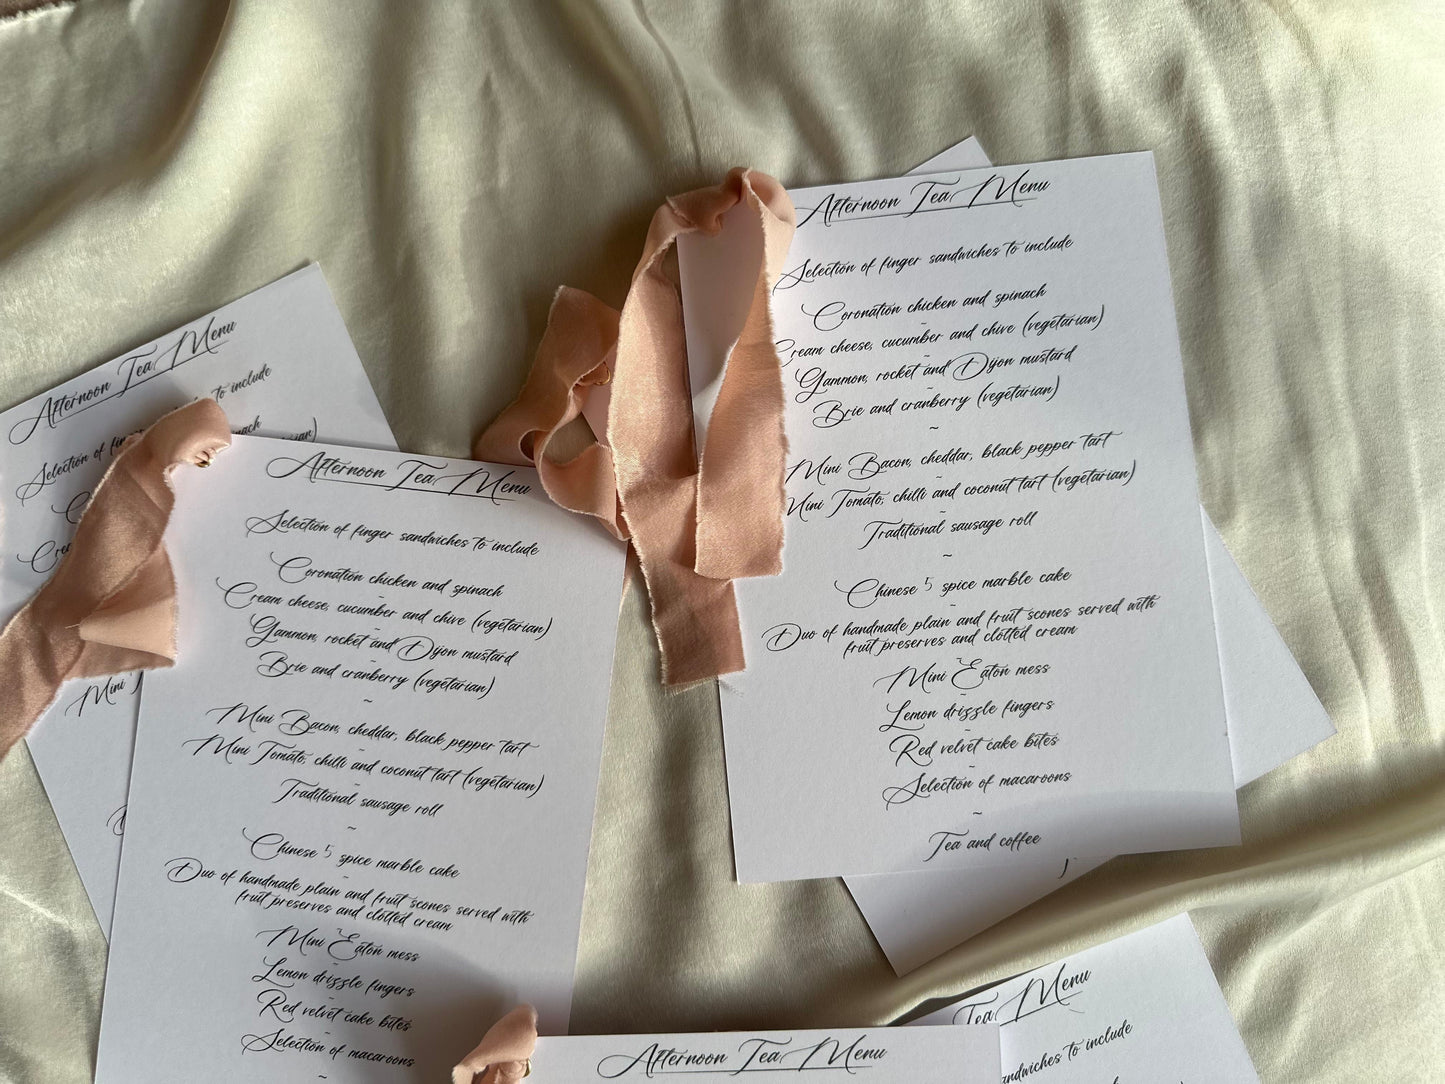 Afternoon Tea Menu
Selection of finger sandwiches to include
Coronation chicken and spinach
~
Cream cheese, cucumber and chive (vegetarian)
~
Gammon, rocket and Dijon mustard
~
Brie and cranberry (vegetarian)
~
Mini Bacon, cheddar, black pepper tart
~
Mini Tomato, chilli and coconut tart (vegetarian)
~
Traditional sausage roll
~
Chinese 5 spice marble cake
~
Duo of handmade plain and fruit scones served with
fruit preserves and clotted cream
~
Mini Eaton mess
~
Lemon drizzle fingers
~
Red velvet cake bites
~
Selection of macaroons
~
Tea and coffee
Afternoon Tea Menu
Selection of finger
to include
Mini
Afternoon Tea Menu
Selection of finger sandwiches to include
Coronation chicken and spinach
~
Cream cheese, cucumber and chive (vegetarian)
~
Gammon, rocket and Dijon mustard
~
Brie and cranberry (vegetarian)
~
Mini Bacon, cheddar, black pepper tart
~
Mini Tomato, chilli and coconut tart (vegetarian)
~
Traditional sausage roll
~
Chinese 5 spice marble cake
~
Duo of handmade plain and fruit scones served with
fruit preserves and clotted cream
~
Mini Eaton mess
~
Lemon drizzle fingers
~
Red velvet cake bites
~
Selection of macaroons
~
Tea Menu
to include
Afternoon Tea Menu